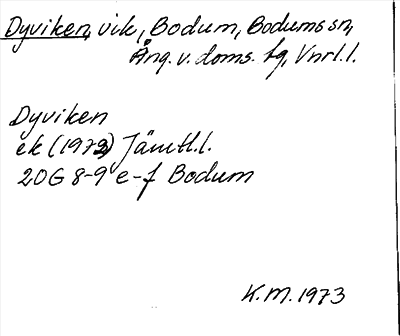 Dyviken, vik, Bodum, Bodums sn,
Ång. v. doms. tg, Vnrl.l.
Dyviken
ek (1972) Jämtl.l.
20G 8-9 e-f Bodum
K.M. 1973